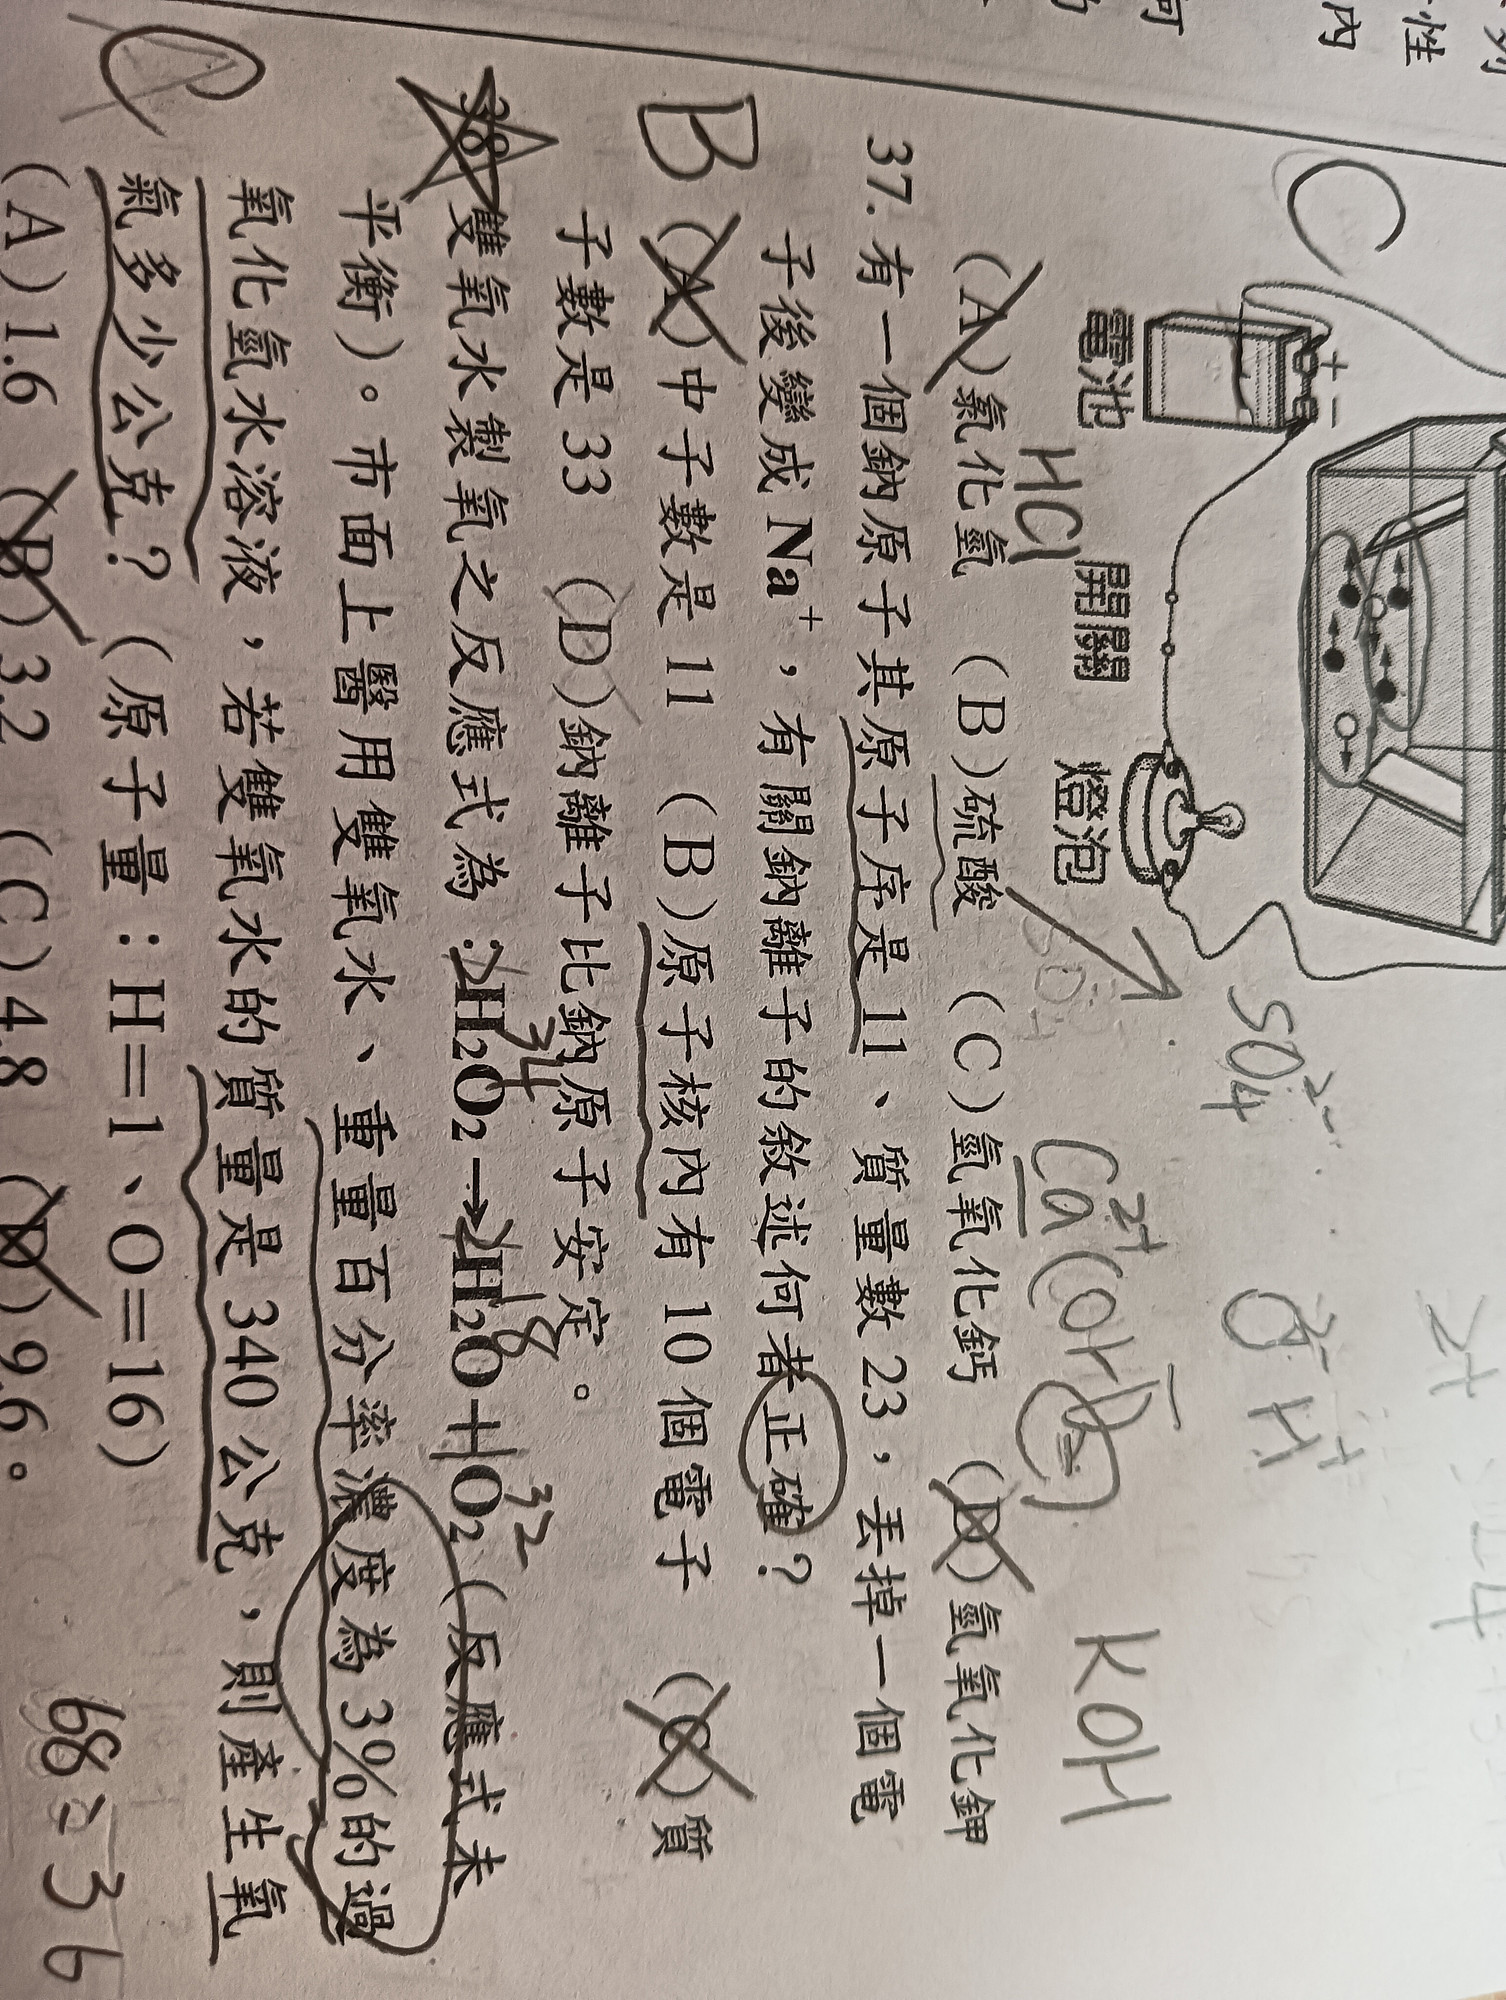 何
內
性
C
+ -
電池
開關
燈泡
SO₄²⁻
HCl
Ca²⁺(OH⁻)₂
KOH
O²⁻ H⁺
(A)氯化氫 (B)硫酸 (C)氫氧化鈣 (D)氫氧化鉀
37.有一個鈉原子其原子序是11、質量數23，丟掉一個電
子後變成Na⁺，有關鈉離子的敘述何者正確？
B
(A)中子數是11 (B)原子核內有10個電子 (C)質
子數是33 (D)鈉離子比鈉原子安定。
34 18 32
38 雙氧水製氧之反應式為：2H₂O₂→2H₂O+O₂（反應式未
平衡）。市面上醫用雙氧水、重量百分率濃度為3%的過
氧化氫水溶液，若雙氧水的質量是340公克，則產生氧
氣多少公克？（原子量：H=1、O=16）
C
(A)1.6 (B)3.2 (C)4.8 (D)9.6。
68 : 36